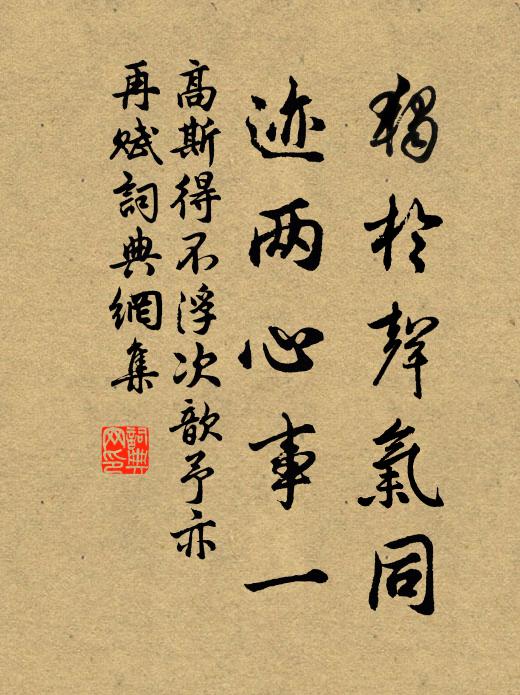 獨於聲氣同
迹两心事一
高斯得不浮次歆予亦
再赋詞典網集
詞典网印